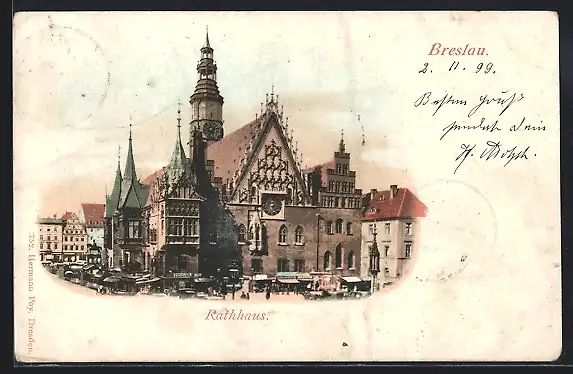 Breslau.
2. 11. 99.
Besten Gruß
sendet dein
H. Adolph.
Rathhaus.
752. Hermann Poy, Dresden.